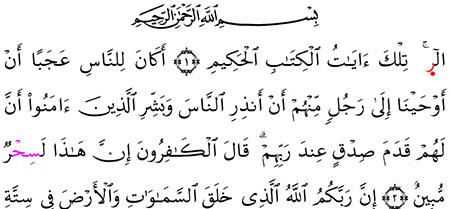 بِسْمِ اللَّهِ الرَّحْمَٰنِ الرَّحِيمِ
الٓرۚ تِلْكَ ءَايَٰتُ الْكِتَٰبِ الْحَكِيمِ ﴿١﴾ أَكَانَ لِلنَّاسِ عَجَبًا أَنْ
أَوْحَيْنَا إِلَىٰ رَجُلٍ مِّنْهُمْ أَنْ أَنذِرِ النَّاسَ وَبَشِّرِ الَّذِينَ ءَامَنُوا أَنَّ
لَهُمْ قَدَمَ صِدْقٍ عِندَ رَبِّهِمْۗ قَالَ الْكَٰفِرُونَ إِنَّ هَٰذَا لَسِحْرٌ
مُّبِينٌ ﴿٢﴾ إِنَّ رَبَّكُمُ اللَّهُ الَّذِى خَلَقَ السَّمَٰوَٰتِ وَالْأَرْضَ فِى سِتَّةِ